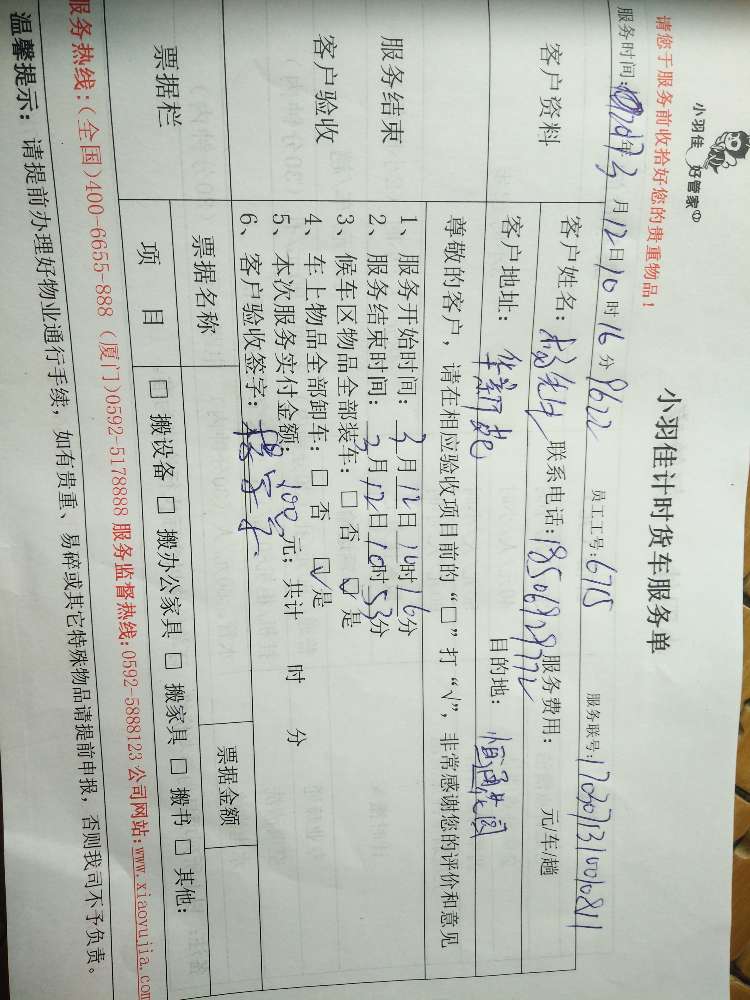 小羽佳 好管家
小羽佳计时货车服务单
请您于服务前收拾好您的贵重物品！
服务时间: 2017年3月12日10时16分 9622 员工工号:6715 服务联号:
客户资料
客户姓名： 杨先生 联系电话: 服务费用： 元/车/趟
客户地址： 华新苑 目的地：
尊敬的客户，请在相应验收项目前的“□”打“√”，非常感谢您的评价和意见
服务结束
客户验收
1、服务开始时间：3月12日10时16分
2、服务结束时间：3月12日10时53分
3、候车区物品全部装车：□ 否 ☑ 是
4、车上物品全部卸车：□ 否 ☑ 是
5、本次服务实付金额：100元；共计 时 分
6、客户验收签字：
票据栏
票据名称 票据金额
项 目 □ 搬设备 □ 搬办公家具 □ 搬家具 □ 搬书 □ 其他：
服务热线：(全国)400-6655-888 (厦门)0592-5178888 服务监督热线:0592-5888123 公司网站:www.xiaoyujia.com
温馨提示： 请提前办理好物业通行手续，如有贵重、易碎或其它特殊物品请提前申报，否则我司不予负责。